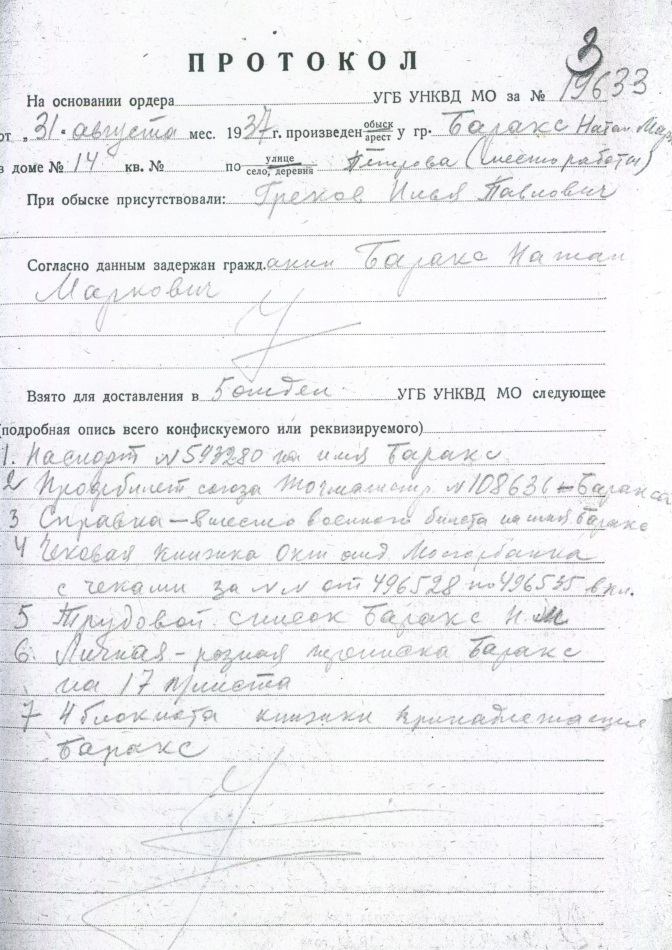 3
ПРОТОКОЛ
На основании ордера УГБ УНКВД МО за № 19633
от „31“ августа мес. 1937 г. произведен обыск арест у гр. Баракс Натан Мар
в доме № 14 кв. № по улице село, деревня Петрова (место работы)
При обыске присутствовали: Грехов Илья Павлович
Согласно данным задержан гражд.анин Баракс Натан
Маркович
Взято для доставления в 5 отдел УГБ УНКВД МО следующее
(подробная опись всего конфискуемого или реквизируемого)
1. Паспорт № 593280 на имя Баракс
2 Профбилет союза № 108636 – Баракса
3 Справка – вместо военного билета на имя Баракс
4 Чековая книжка Окт отд Мосгорбанка
с чеками за №№ от 496528 по 496535 вкл.
5 Трудовой список Баракс Н. М
6. Личная – разная переписка Баракс
на 17 листа
7 4 блокнота книжки принадлежащие
Баракс